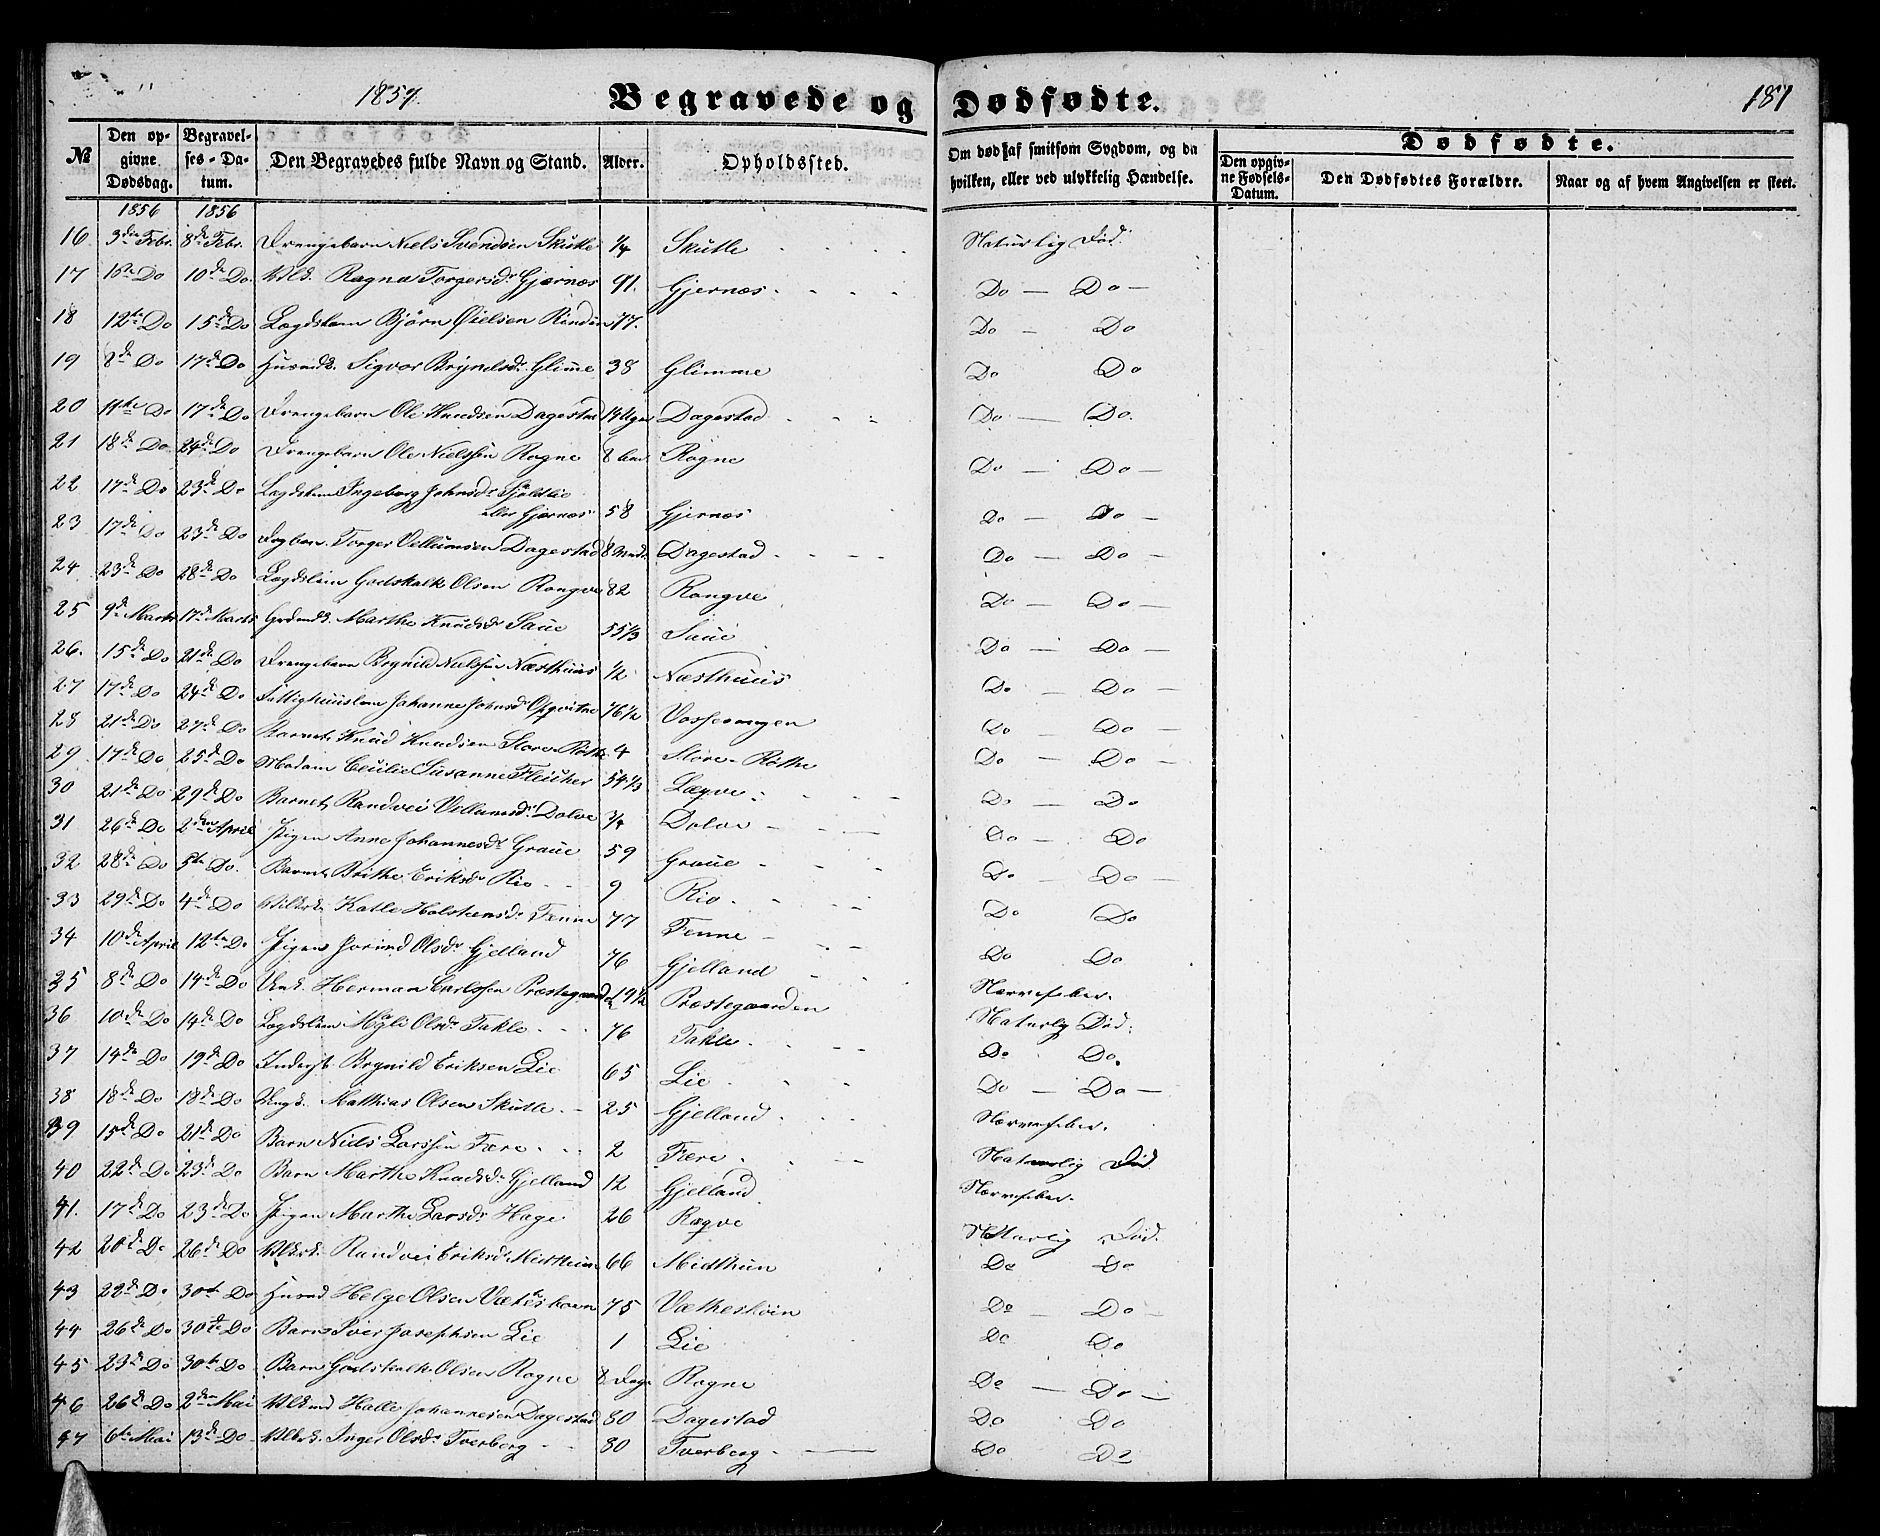 1857. Begravede og Dødfødte. 181
№ Den opgivne Dødsdag. Begravelses-Datum. Den Begravedes fulde Navn og Stand. Alder. Opholdssted. Om død af smitsom Sygdom, og da hvilken, eller ved ulykkelig Hændelse. Dødfødte. Den opgivne Fødsels-Datum. Den Dødfødtes Forældre. Naar og af hvem Angivelsen er skeet.
1856 1856
16 3die Febr. 8de Febr. Drengebarn Niels Svendsen Skutle 1/4 Skutle Naturlig Død.
17 Do 10de Do. Ragna Torgersdr Gjernæs 91. Gjernæs Do - Do -
18 12te Do 15de Do Lægdslem Bjørn 77. Do - Do
19 8de Do 17de Do Sigvor Brynelsdr Glimme 38 Glimme Do Do
20 11te Do 17de Do Drengebarn Ole Knudsen Dagestad 14 Uger Dagestad Do - Do.
21 18de Do. 24de Do Drengebarn Ole Nielssen Rogne 8 Rogne Do - Do -
22 17de Do 23de Do Lægdslem Ingeborg Johnsdr Sjøldlie
eller Gjernæs 58 Gjernæs Do - Do -
23 17de Do 23de Do Torger Villumsen Dagestad 8 Dagestad Do - Do -
24 23de Do 28de Do Lægdslem Godskalk Olsen Rongve 82 Rongve Do - Do -
25 9de Marts 17de Marts Marthe Knudsdr Saue 55 1/3 Saue Do - Do -
26. 15de Do 21de Do Drengebarn Brynild Nielssen Næsthuus 1/2 Næsthuus Do - Do -
27 17de Do 24de Do Fattighuuslem Johanne Johnsdr Opqvitne 76 1/2 Vossevangen Do - Do -
28 21de Do 27de Do Barnet Knud Knudsen Store Røthe 4 Store-Røthe Do - Do -
29 17de Do 25de Do Madam Cecilie Susanne Fleischer 54 1/3 Lægve Do Do
30 21de Do 29de Do Barnet Randvei Villumsdr Dolve 3/4 Dolve Do - Do
31 26de Do 2den April Pigen Anne Johannesdr Graue 59 Graue Do - Do -
32 28de Do 5te Do. Barnet Brithe Eriksdr Rio 9 Rio Do Do
33 29de Do 4de Do Katle Holstensdr Fenne 77 Fenne Do Do
34 10de April 12te Do Pigen Jorind Olsdr Gjelland 76 Gjelland Nærvefeber.
35 8de Do 14de Do Ungk. Herman Carlssen Præstegaard 19 1/2 Præstegaarden Naturlig Død.
36 10de Do 14de Do Lægdslem Olsdr Takle 76 Takle Do Do.
37 14de Do 19de Do Inderst Brynild Eriksen Lie 65 Lie Do - Do -
38 18de Do 18de Do Ungk. Matthias Olsen Skutle 25 Gjelland Nærvefeber.
39 15de Do 21de Do Barn Niels Larssen Fære 2 Fære Naturlig Død.
40 22de Do 23de Do Barn Marthe Knudsdr Gjelland 12 Gjelland Nærvefeber.
41. 17de Do 23de Do Pigen Marthe Larsdr Hage 26 Røqve Naturlig Død.
42 20de Do 26de Do Randvei Eriksdr Midthun 66 Midthun Do Do
43 22de Do 30te Do Helge Olsen 75 Do - Do -
44 26de Do 30te Do Barn Iver Josephsen Lie 1 Lie Do Do
45 23de Do 30te Do Barn Godskalk Olsen Rogne 8 Dage Rogne Do - Do -
46 26de Do 2den Mai Halle Johannesen Dagestad 80 Dagestad Do Do
47 6te Mai 13de Do Inger Olsdr Tverberg 80 Tverberg Do Do